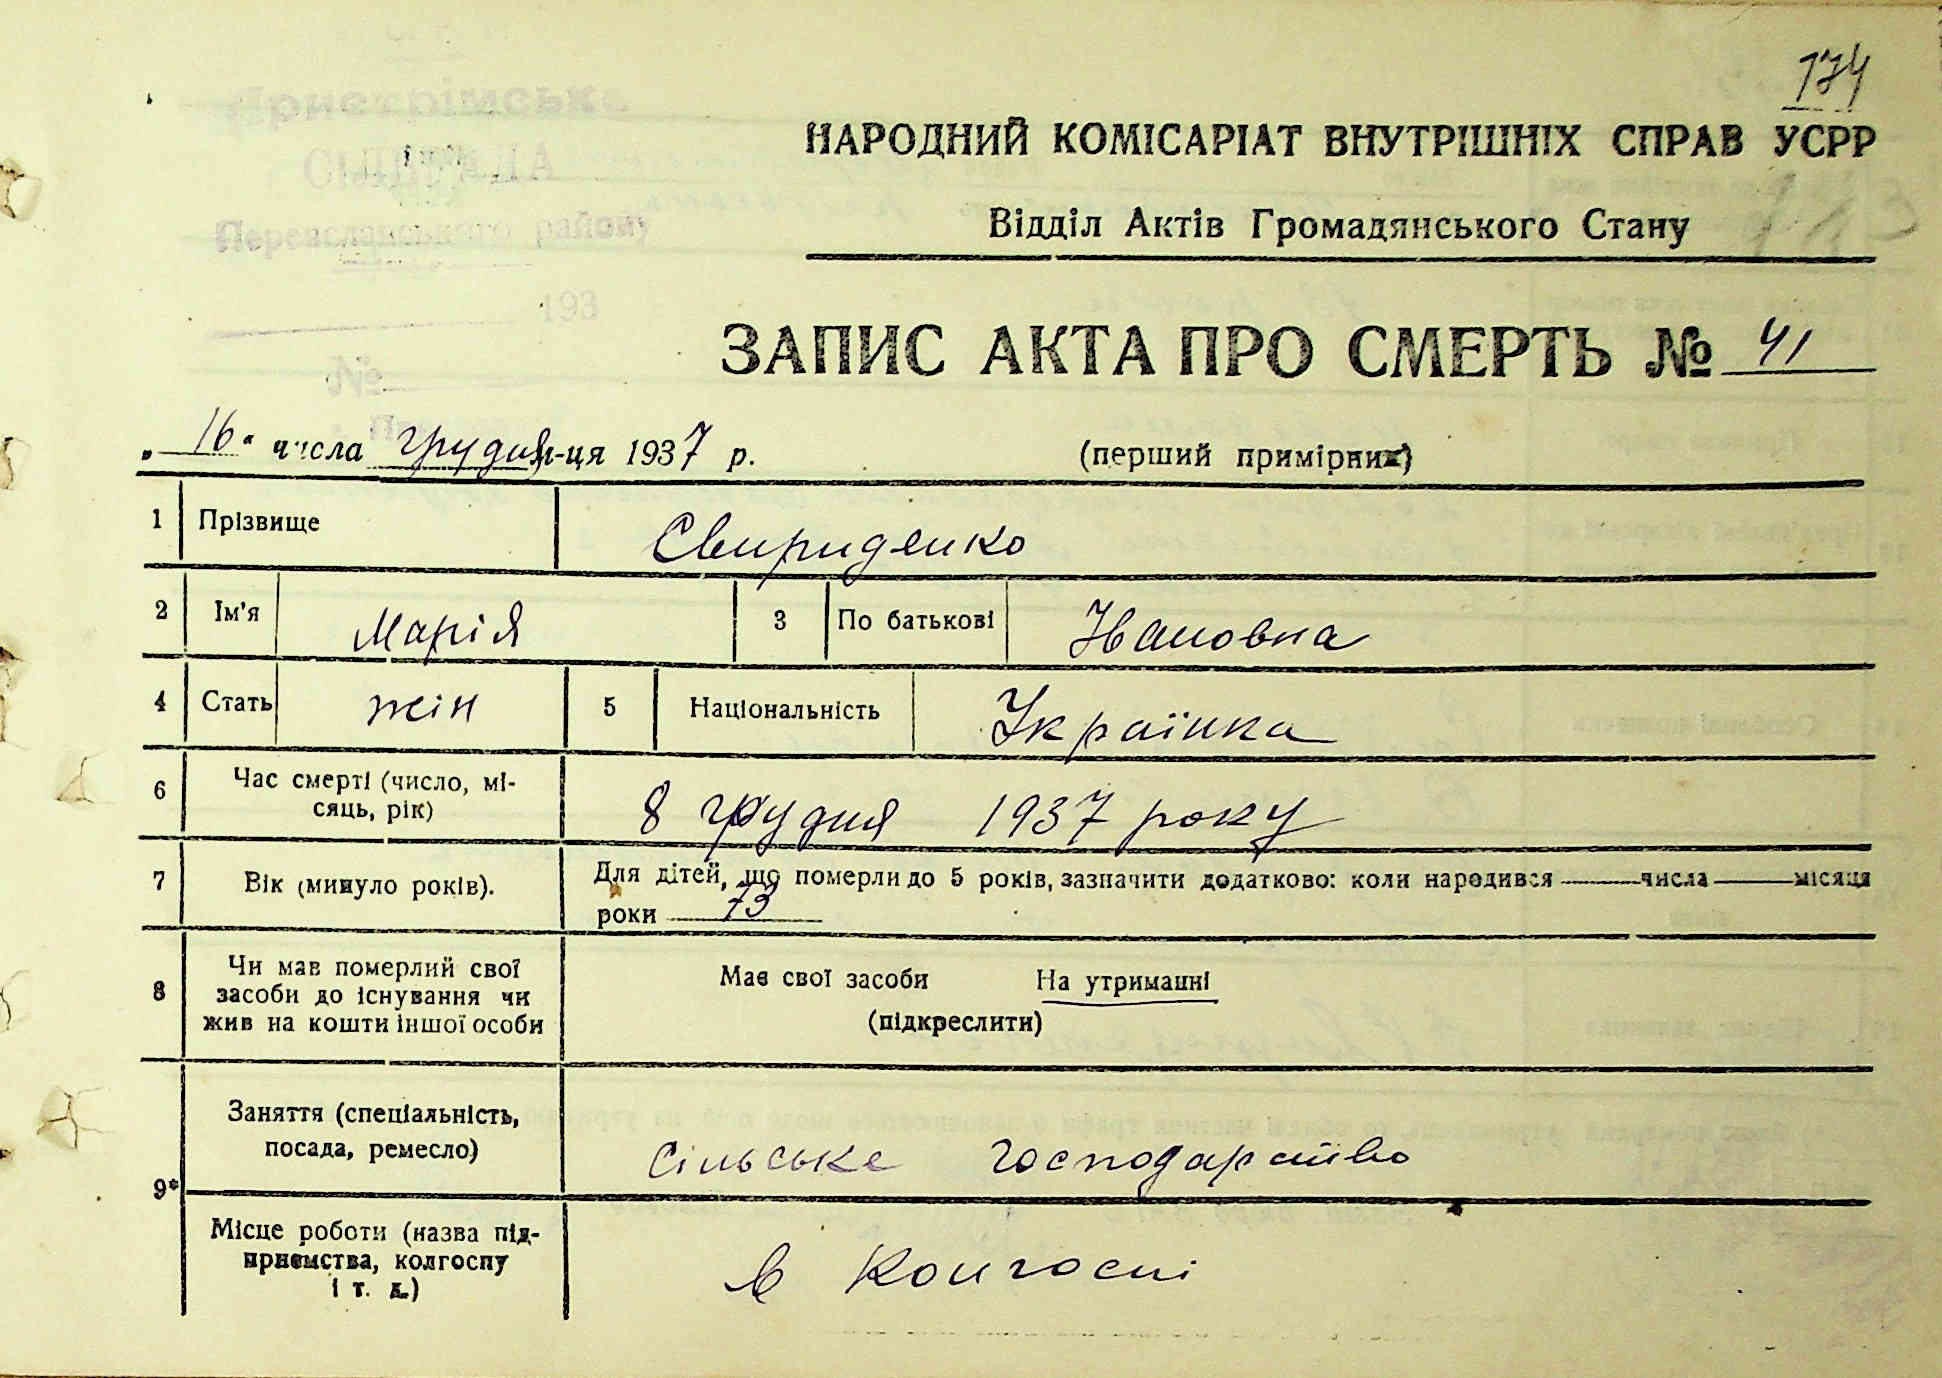 174
Пристрімська
СІЛЬРАДА
Переяславського району
193
№
НАРОДНИЙ КОМІСАРІАТ ВНУТРІШНІХ СПРАВ УСРР
Відділ Актів Громадянського Стану
ЗАПИС АКТА ПРО СМЕРТЬ № 41
„ 16 " числа грудня м-ця 1937 р. (перший примірник)
1 Прізвище Свириденко
2 Ім'я Марія 3 По батькові Івановна
4 Стать жін 5 Національність Українка
6 Час смерті (число, мі-
сяць, рік) 8 грудня 1937 року
7 Вік (минуло років). Для дітей, що померли до 5 років, зазначити додатково: коли народився числа місяця
роки 73
8 Чи мав померлий свої
засоби до існування чи
жив на кошти іншої особи
Має свої засоби На утриманні
(підкреслити)
9* Заняття (спеціальність,
посада, ремесло) сільське господарство
Місце роботи (назва під-
приємства, колгоспу
і т. д.) в колгоспі